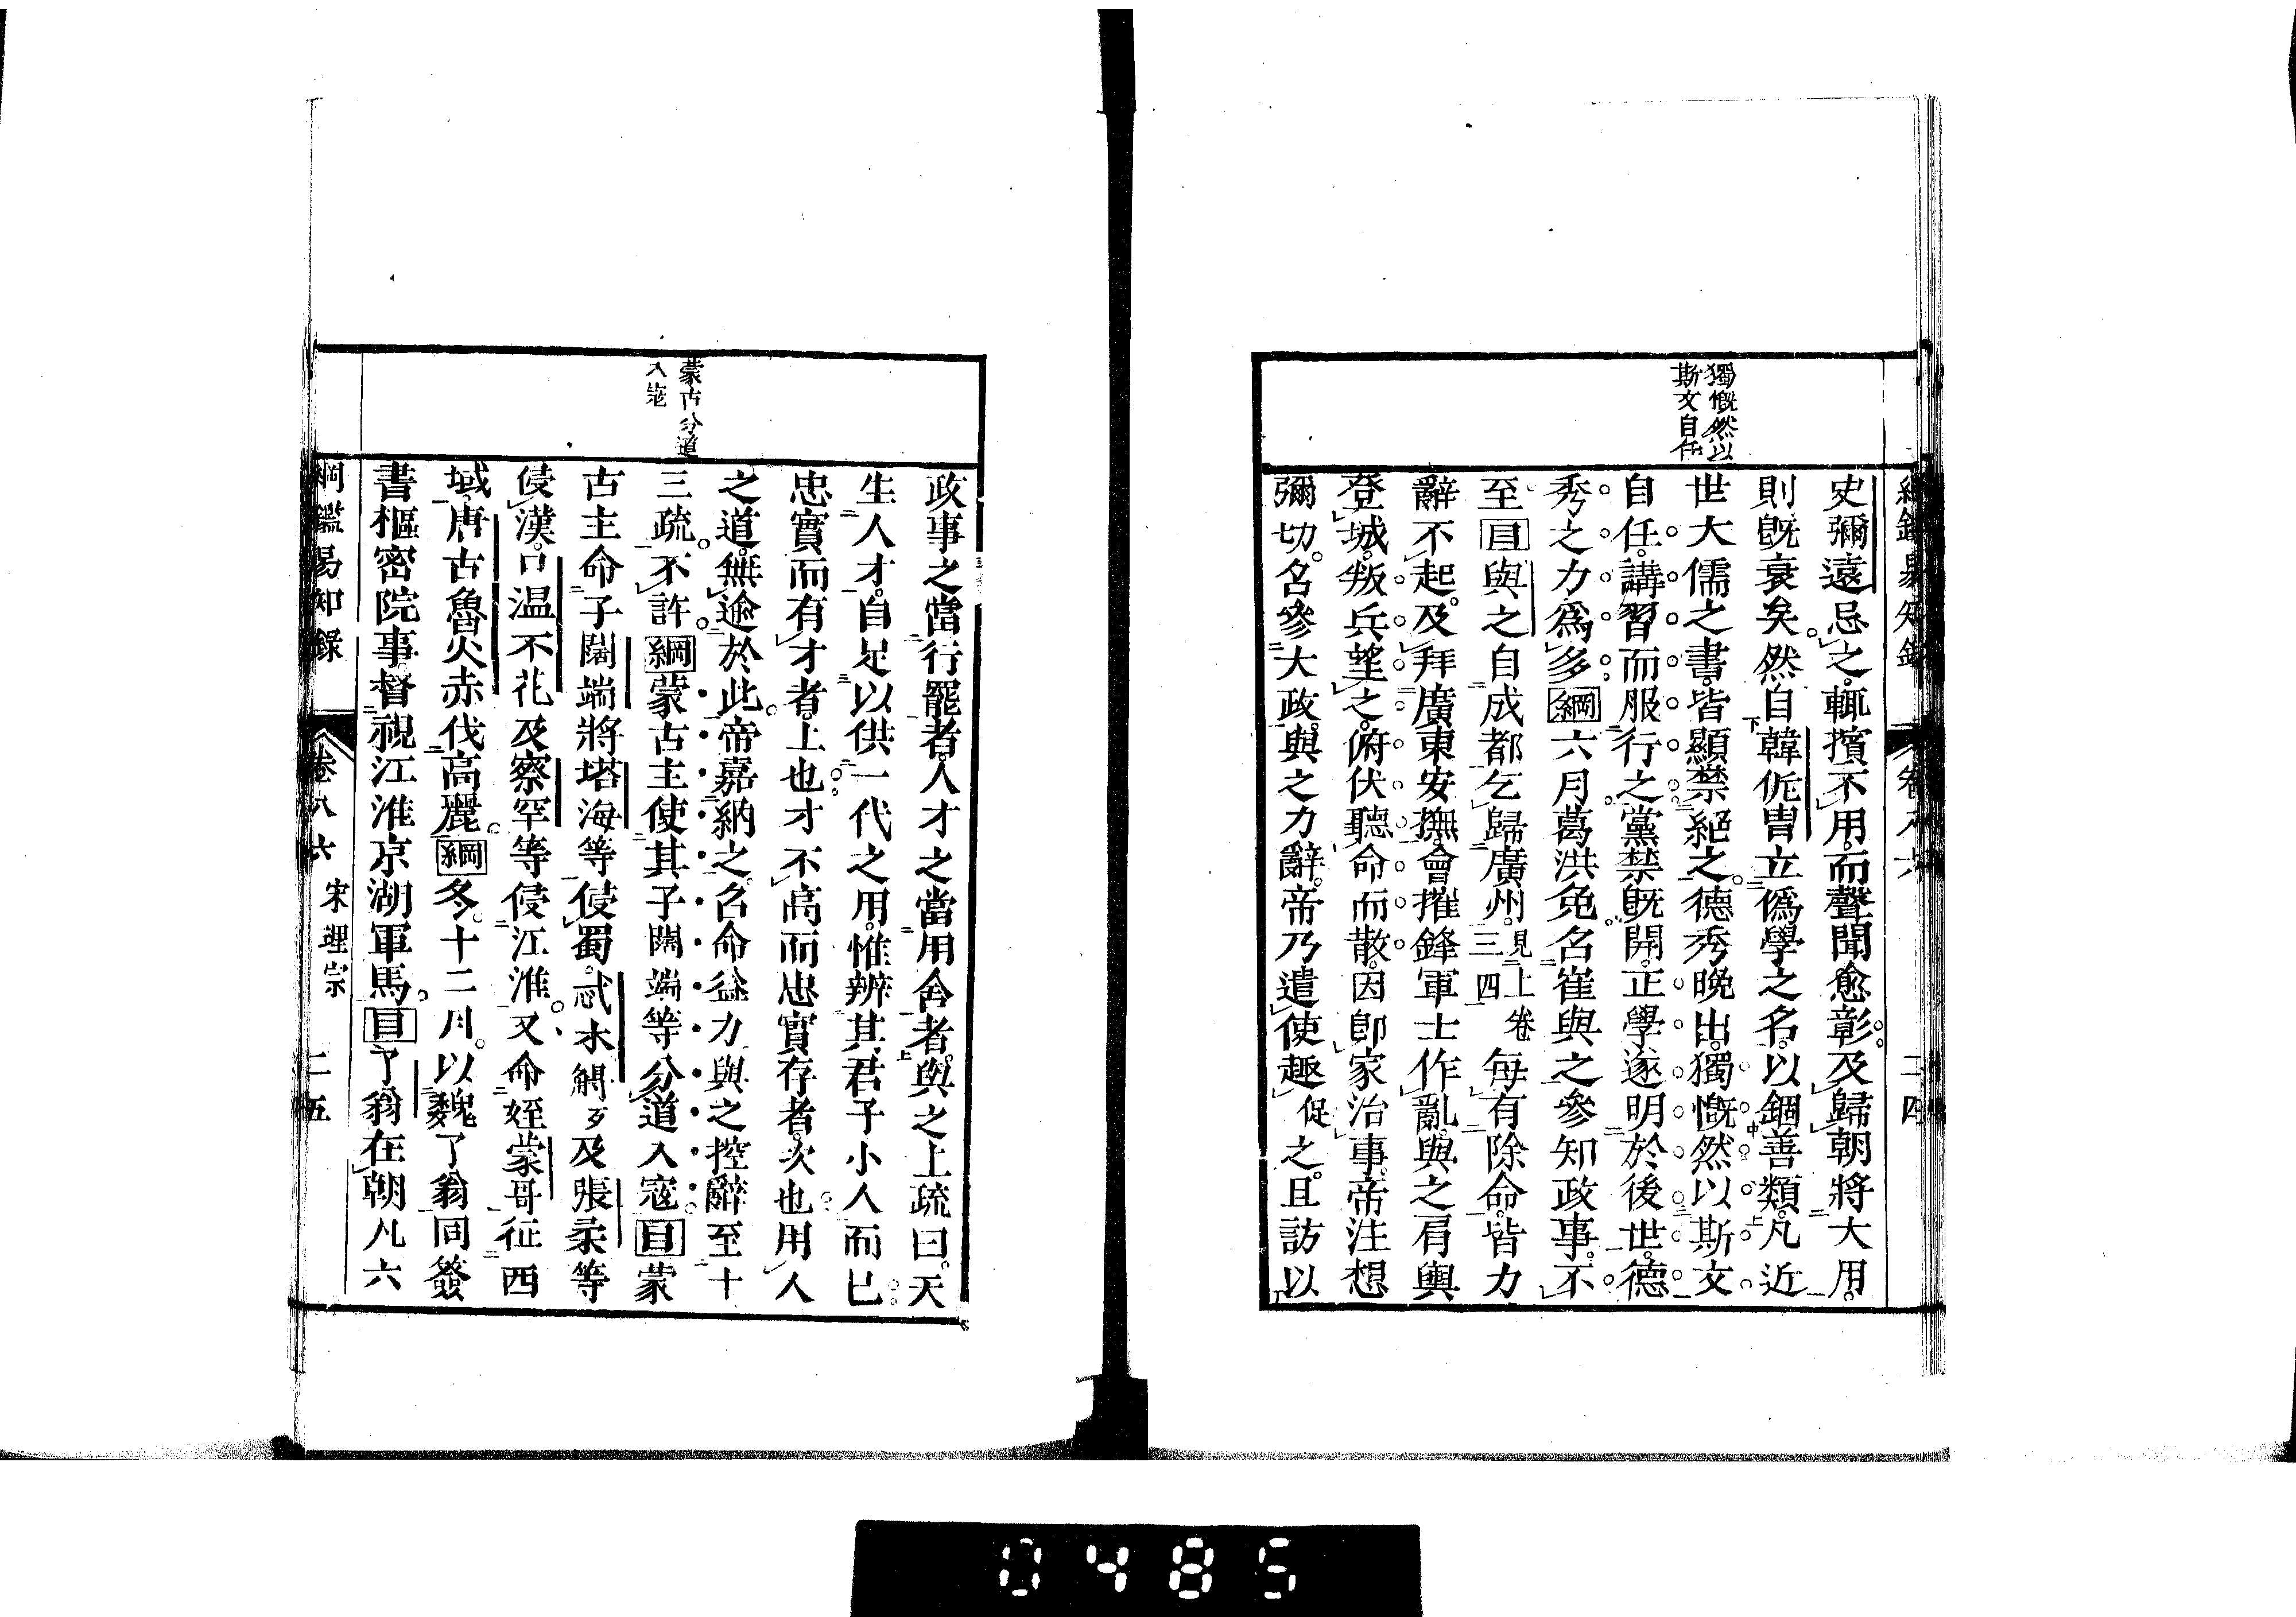 綱鑑易知錄 卷八六 二四
獨慨然以
斯文自任
史彌遠忌之。輒擯不用。而聲聞愈彰。及歸朝將大用。
則旣衰矣。然自韓侂冑立僞學之名。以錮善類。凡近
世大儒之書。皆顯禁絕之。德秀晚出。獨慨然以斯文
自任。講習而服行之。黨禁旣開。正學遂明於後世。德
秀之力爲多。綱六月葛洪免名崔與之參知政事。不
至目與之自成都乞歸廣州。見上卷三四每有除命。皆力
辭不起。及拜廣東安撫。會摧鋒軍士作亂。與之肩輿
登城。叛兵望之。俯伏聽命而散。因卽家治事。帝注想
彌切。名參大政。與之力辭。帝乃遣使趣促之。且訪以
政事之當行罷者。人才之當用舍者。與之上疏曰。天
生人才。自足以供一代之用。惟辨其君子小人而已。
忠實而有才者。上也。才不高而忠實存者。次也。用人
之道。無逾於此。帝嘉納之。召命益力。與之控辭至十
三疏。不許。綱蒙古主使其子闊端等分道入寇。目蒙
古主命子闊端將塔海等侵蜀。忒木䚟歹及張柔等
侵漢。口温不花及察罕等侵江淮。又命姪蒙哥征西
域。唐古魯火赤伐高麗。綱冬。十二月。以魏了翁同簽
書樞密院事。督視江淮京湖軍馬。目了翁在朝凡六
蒙古分道
入寇
綱鑑易知錄 卷八六 宋理宗 二五
0485